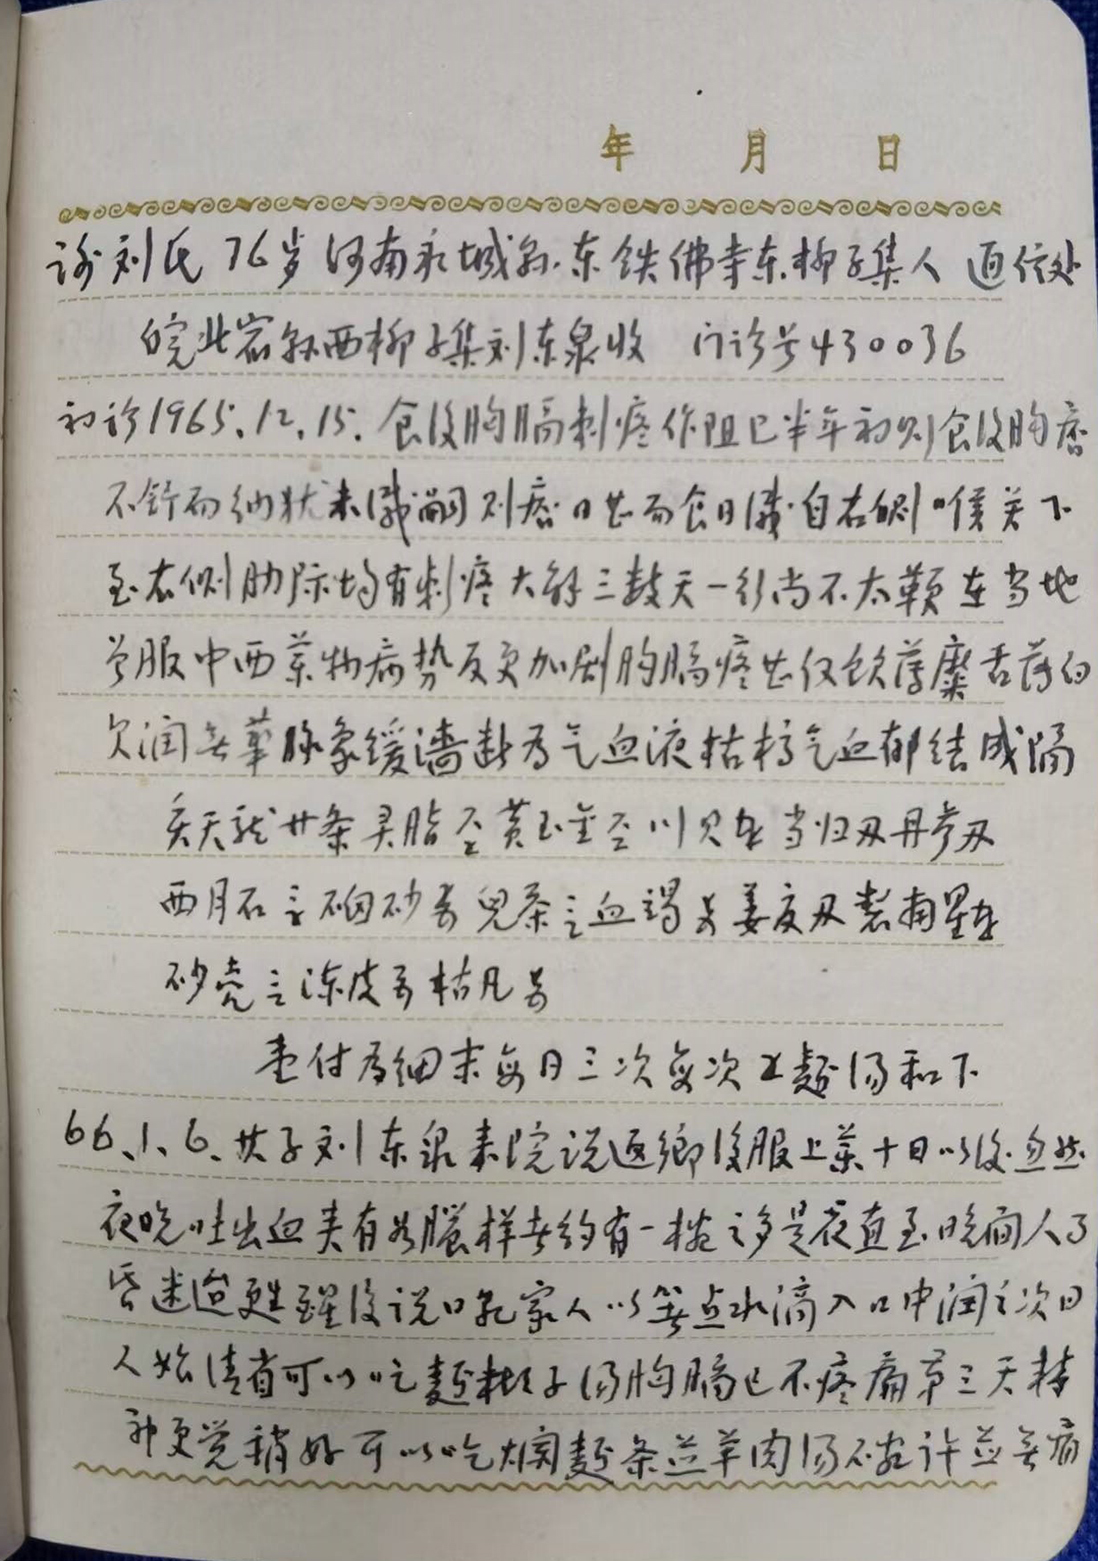 年 月 日
谢刘氏 76岁 河南永城县东铁佛寺东柳子集人 通信处
皖北宿县西柳子集刘东泉收 门诊号430036
初诊1965.12.15. 食後胸膈刺疼作阻已半年初则食後胸痞
不舒而纳状未减嗣则痞日甚而食日减自右侧喉关下
至右侧肋际均有刺疼大解三数天一行尚不太鞕在当地
曾服中西药物病势反更加剧胸膈疼甚仅饮薄糜舌薄白
欠润无华脉象缓濇断为气血液枯槁气血郁结成隔
炙天龙廿条 灵脂 黄玉金 川贝 当归 丹参
西月石 硇砂 儿茶 血竭 姜夏 制南星
砂壳 陈皮 枯凡
壹付为细末每日三次每次 麺汤和下
66.1.6. 其子刘东泉来院说返乡後服上药十日以後忽然
夜晚吐出血夹有如脓样者约有一椀之多是夜直至晚间人了
昏迷 更甦醒後说口乾家人以 点水滴入口中润之次日
人始清省可以吃麺糊子汤胸膈已不疼痛第三天精
神更觉稍好可以吃烂麺条并羊肉汤不 许并无痛